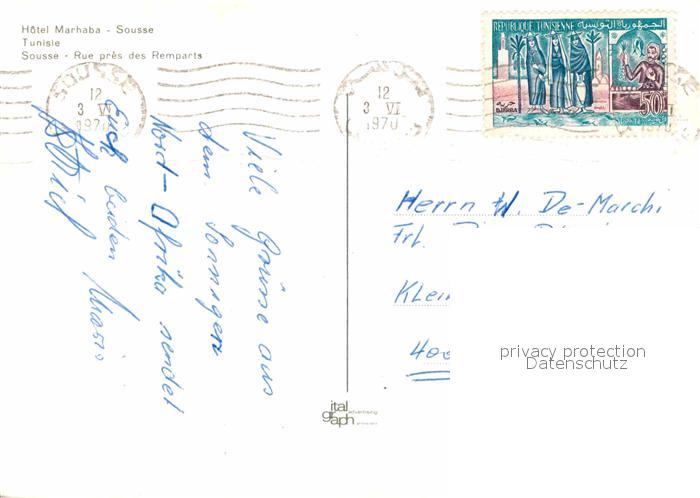 Hôtel Marhaba - Sousse
Tunisie
Sousse - Rue près des Remparts
12
3 VI
1970
12
3 VI
1970
REPUBLIQUE TUNISIENNE الجمهورية التونسية
جربة
DJERBA
50
Viele Grüsse aus
dem Sonnigen
Nord-Afrika sendet
Euch beiden
Herrn W. De-Marchi
Frl.
Klei
400
privacy protection
Datenschutz
ital
graph
advertising